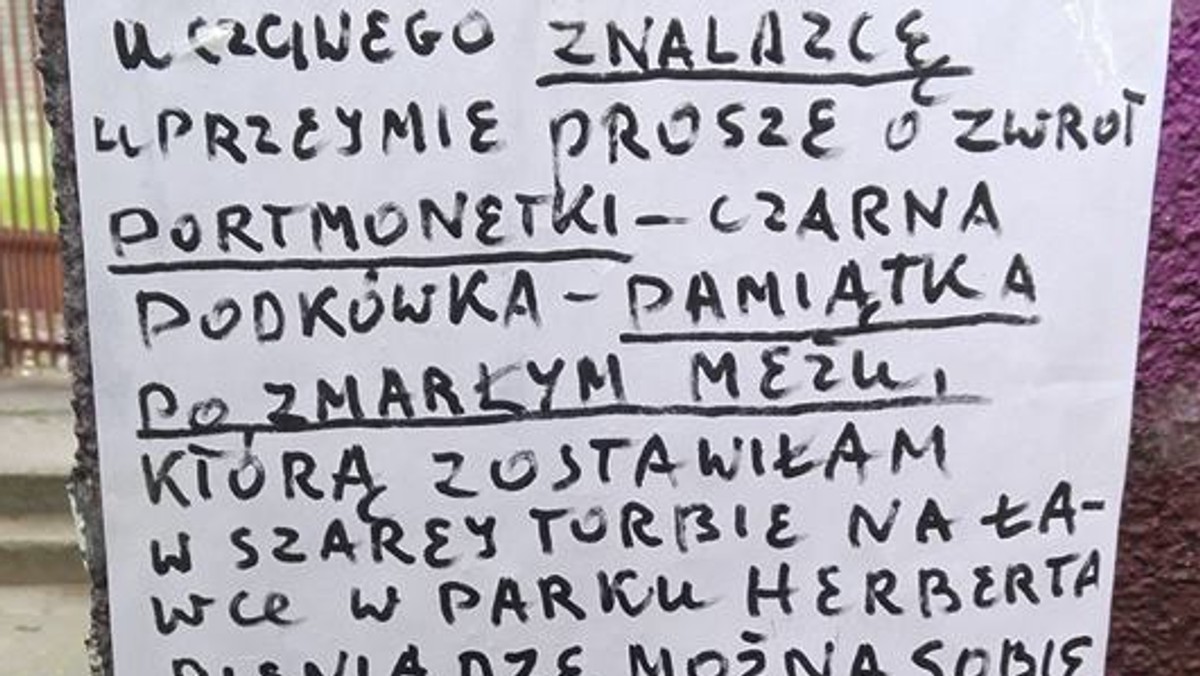 UCZCIWEGO ZNALAZCĘ
UPRZEYMIE PROSZE O ZWROT
PORTMONETKI - CZARNA
PODKÓWKA - PAMIĄTKA
PO ZMARŁYM MEZU,
KTÓRĄ ZOSTAWIŁAM
W SZAREY TORBIE NA ŁA-
WCE W PARKU HERBERTA
PIENIĄDZE MOŻNA SOBIE